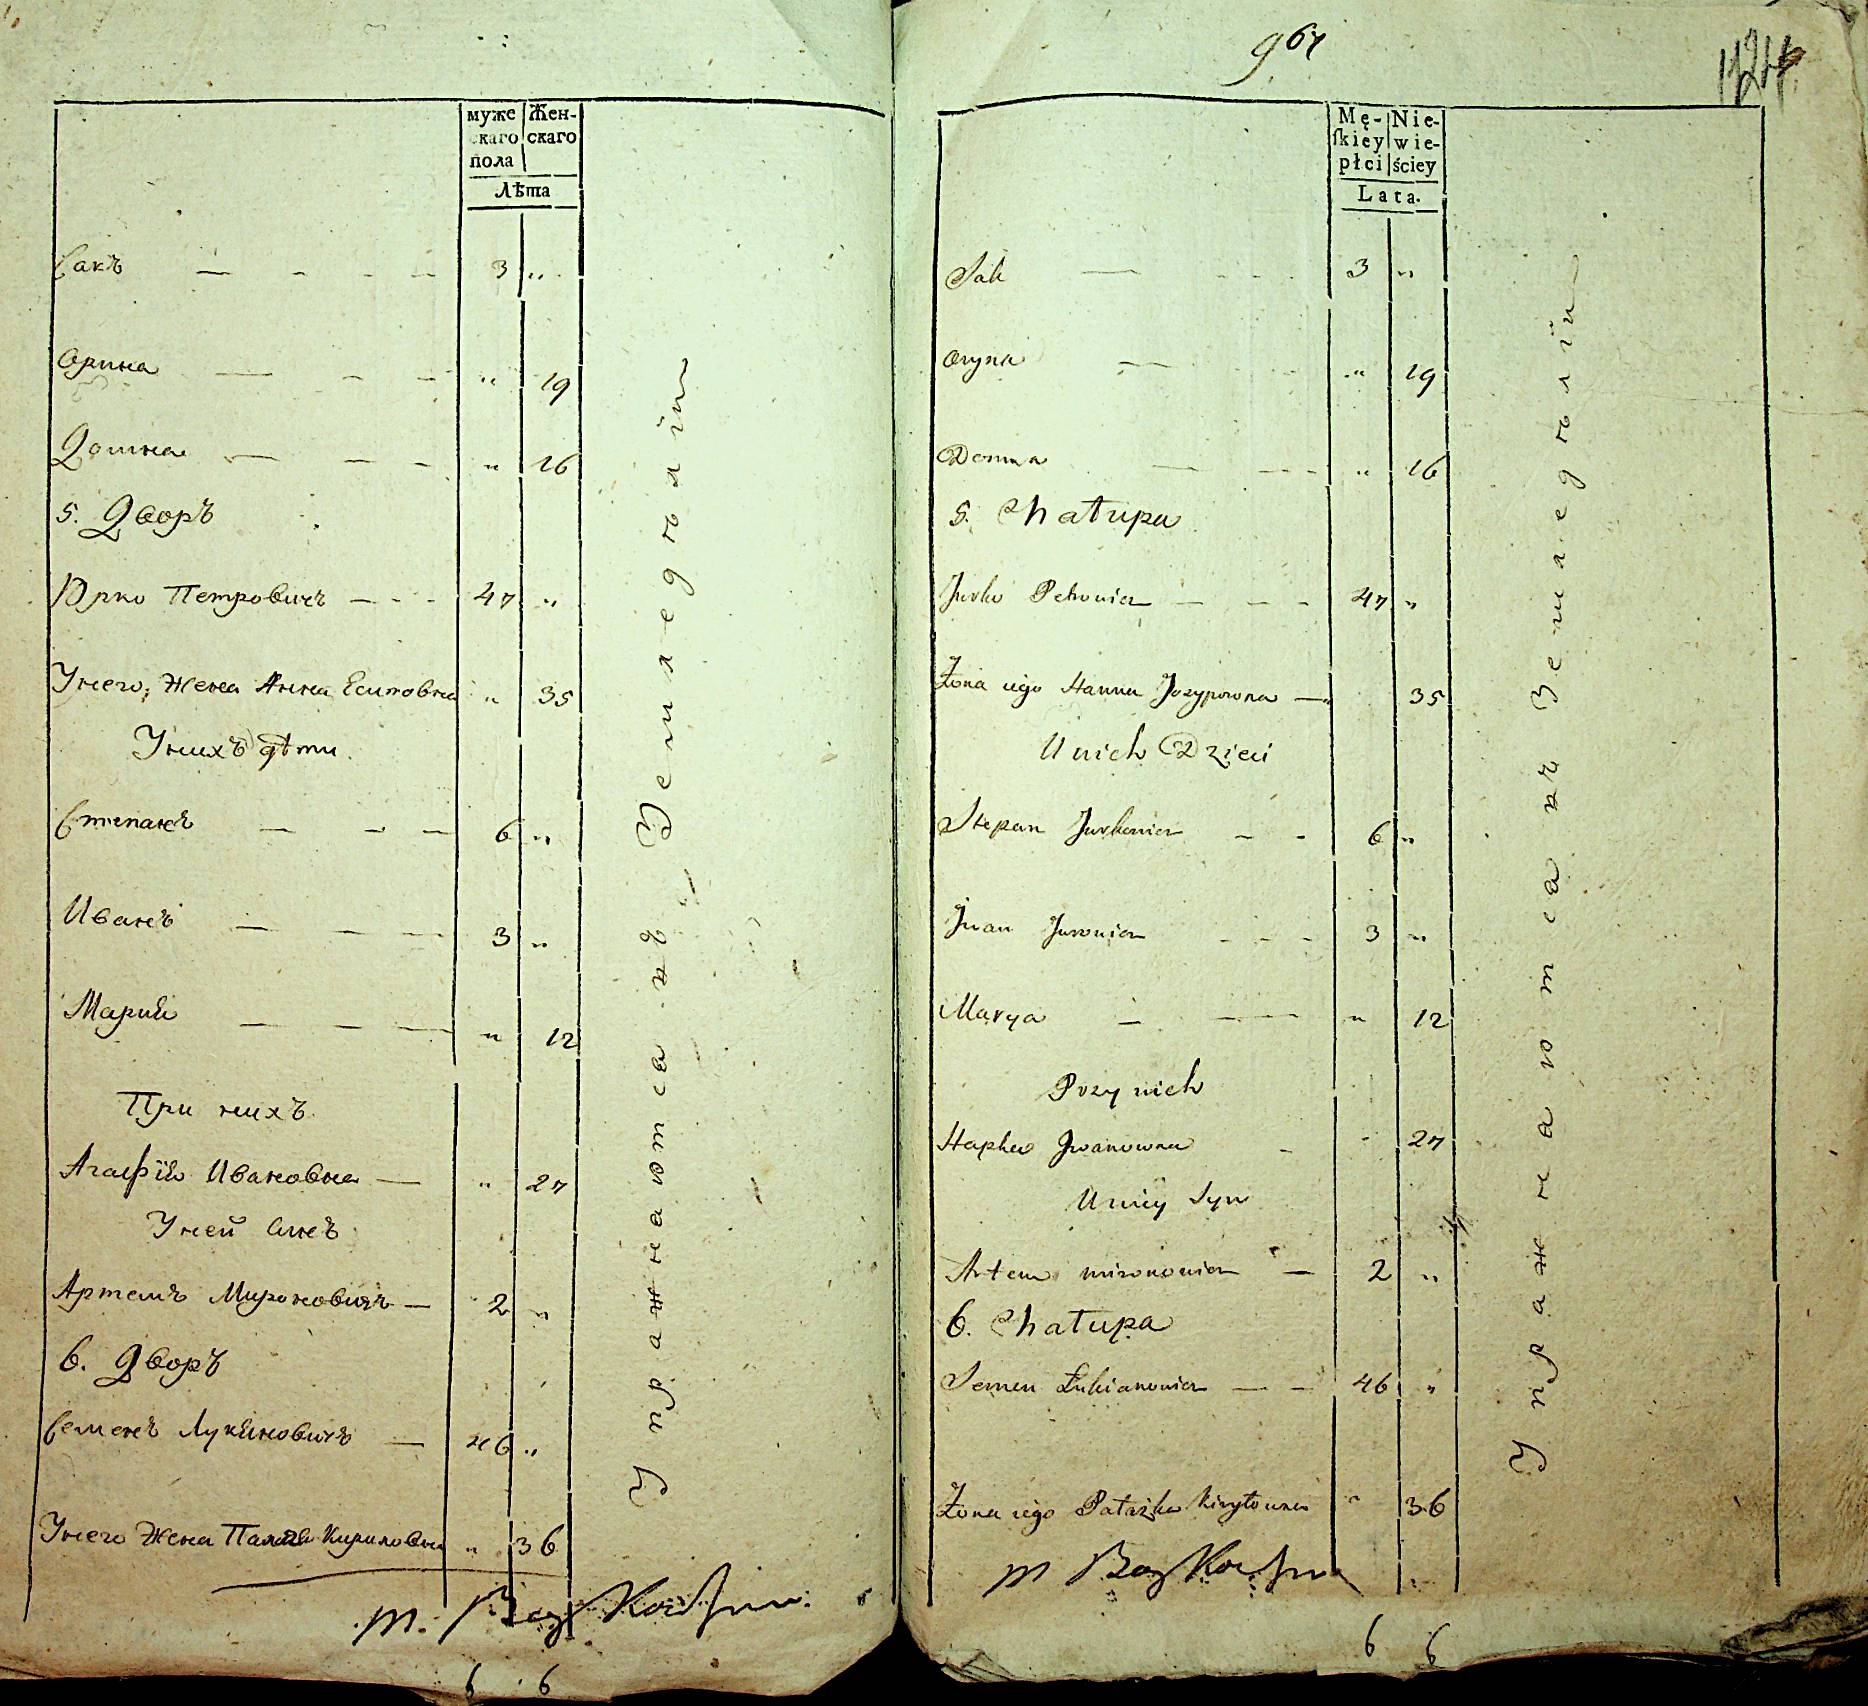 муже Жен-
скаго скаго
пола
Лѣта
Сакъ — - - - 3 „
Орина — - - „ 19
Домна — — - „ 16
5. Дворъ
Юрко Петровичъ - - - 47 „
Унего, Жена Анна Есиповна „ 35
Унихъ дѣти
Степанъ — - — 6 „
Иванъ — — — 3 „
Марья — — — „ 12
При нихъ
Агафія Ивановна — „ 27
Уней Сынъ
Артемъ Мироновичъ — 2 „
6. Дворъ
Семенъ Лукяновичъ — 46 „
Унего Жена Палажа Кирилова „ 36
Упражнаютса къ Земледѣлїи
m.
6 6
967
124
Mę- Nie-
ſkiey wie-
płci ściey
Lata.
Sak — - - - 3 „
Oryna — - - „ 19
Domna — - - - „ 16
5. Chatupa
Jurko Petrowicz — - - 47 „
Żona iego Hanna Jozypowna — 35
U nich Dzieci
Stepan Jurkowicz - - 6 „
Jwan Jurowicz - - - 3 „
Marya — — „ 12
Przy nich
Hapka Jwanowna - „ 27
U niey Syn
Artem mironowicz — 2 „
6. Chatupa
Semen Łukianowicz — - 46 „
Żona iego Patażka Kiryłowna „ 36
Упражнаютса къ Земледѣлїи
m
6 6